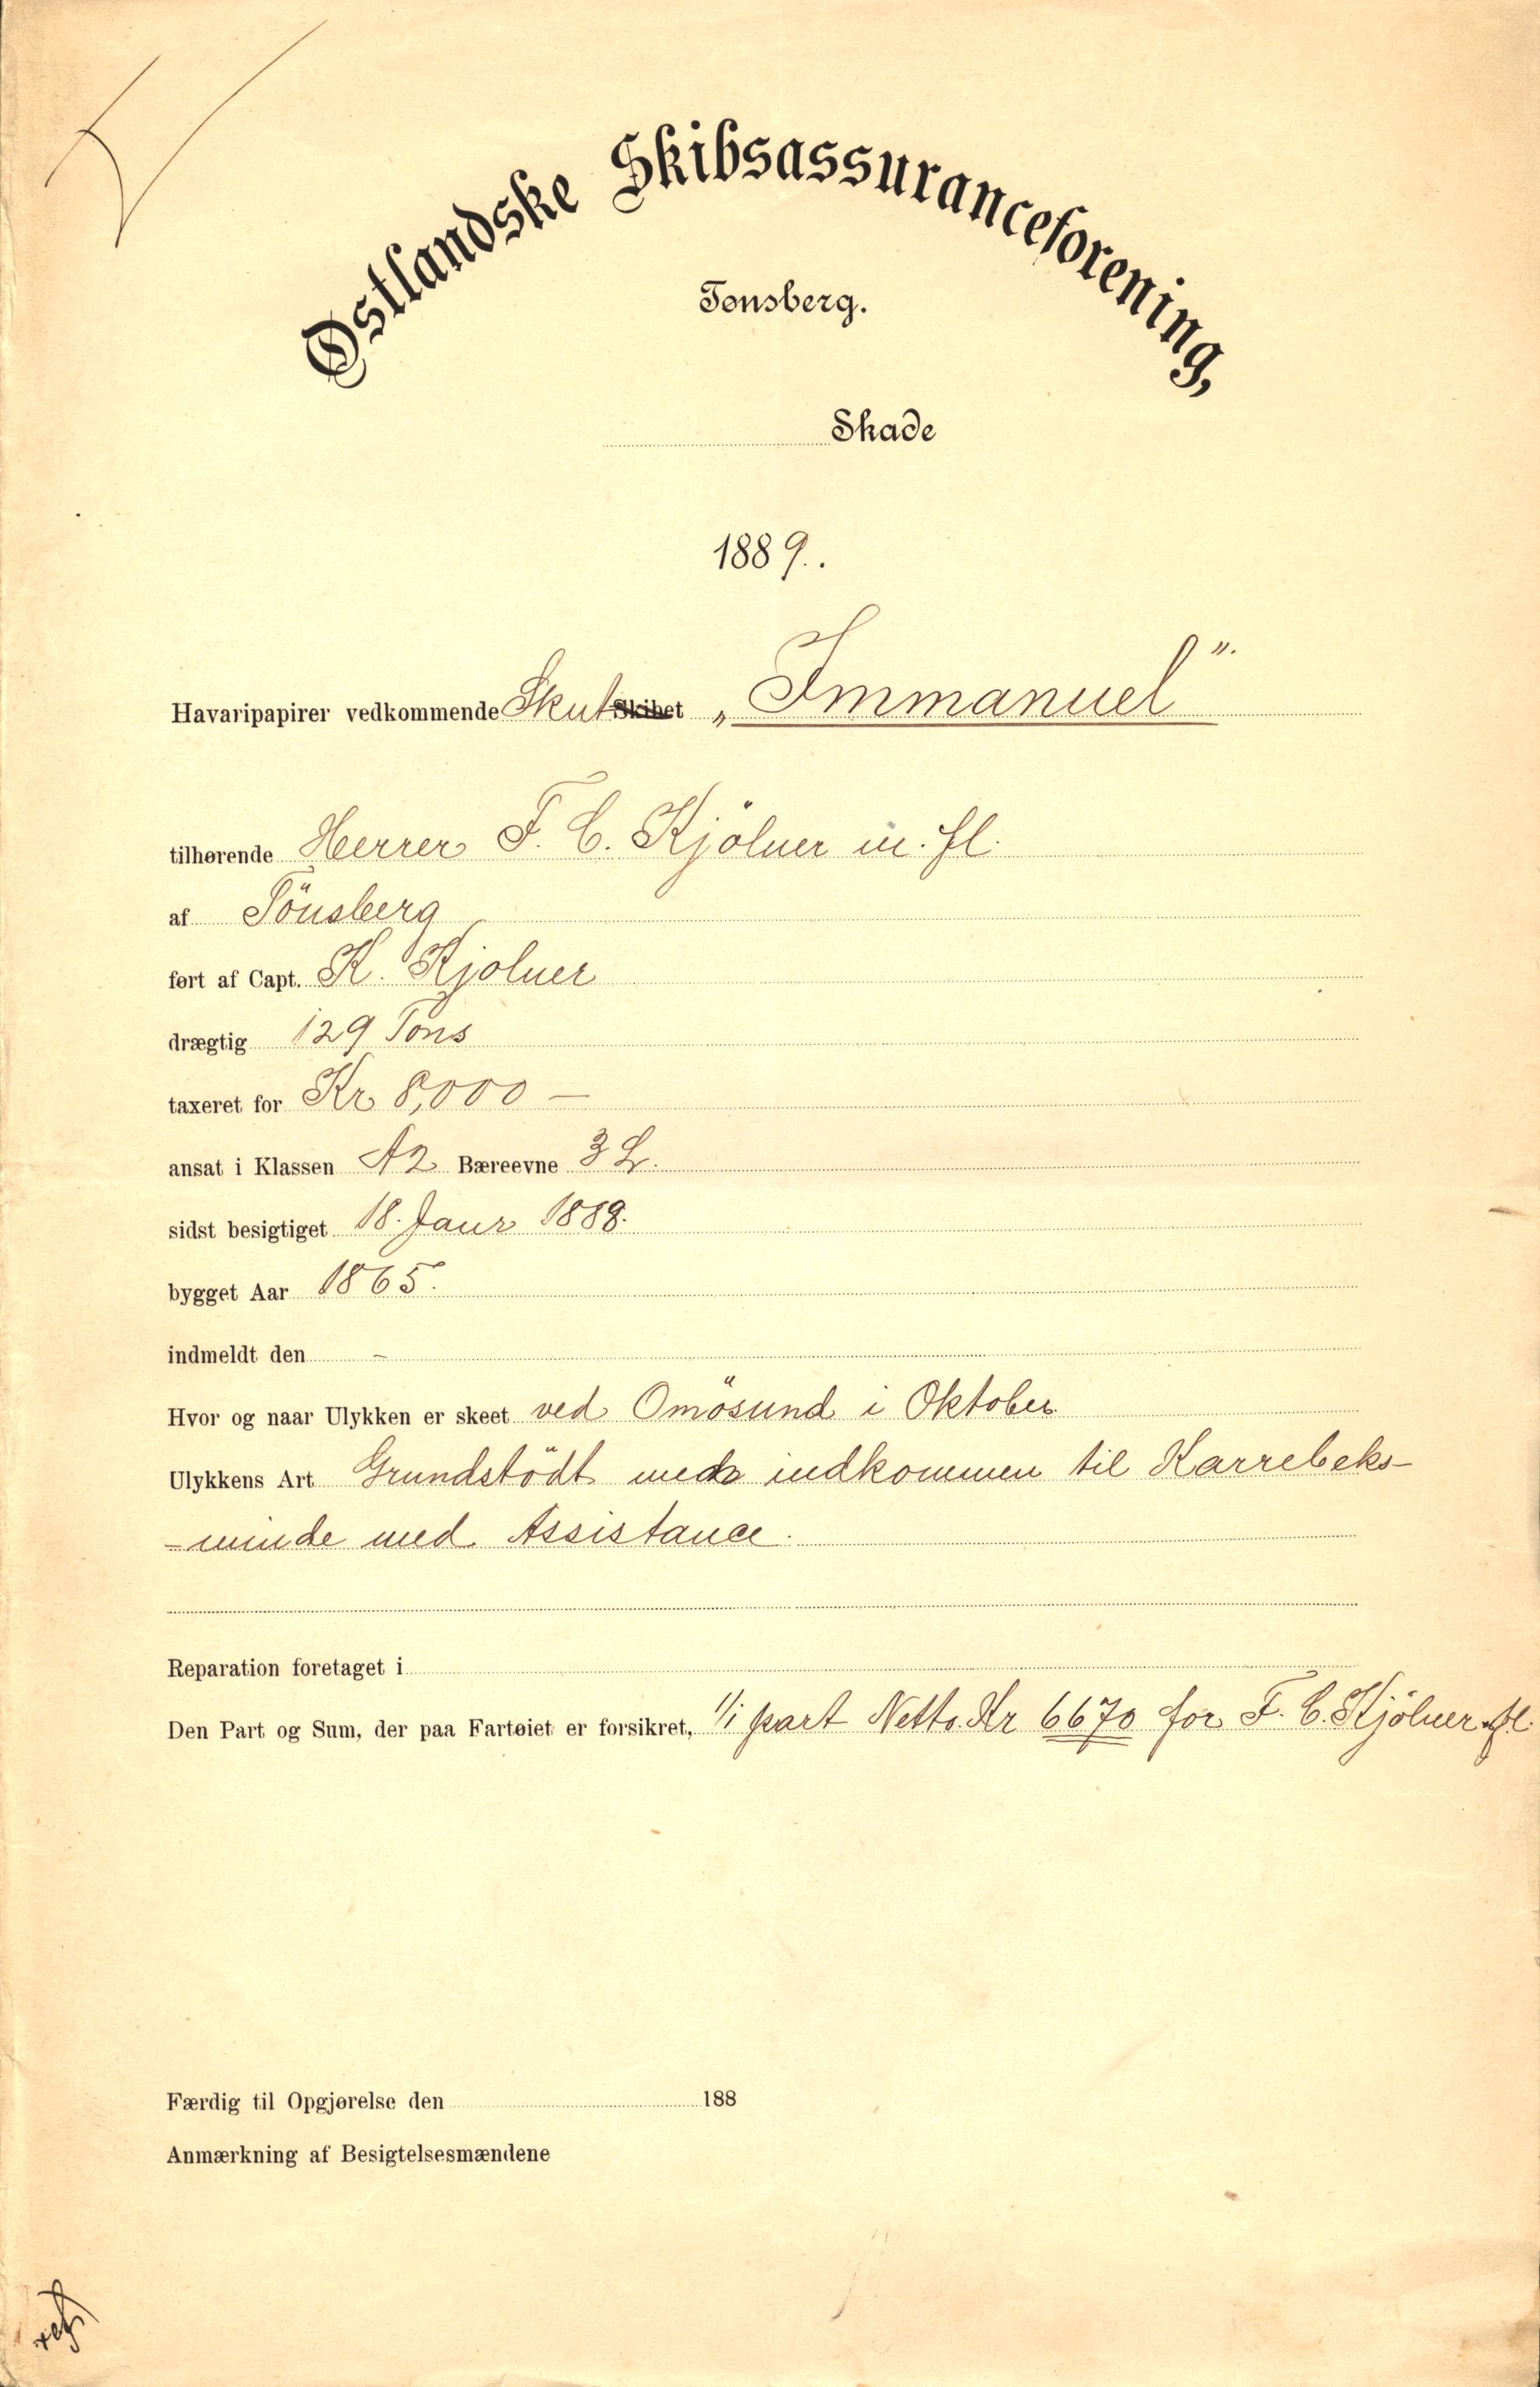 Østlandske Skibsassuranceforening,
Tønsberg.
Skade
1889.
Havaripapirer vedkommende Skut Skibet „Immanuel".
tilhørende Herrer F. C. Kjölner m. fl.
af Tönsberg
ført af Capt. K. Kjolner
drægtig 129 Tons
taxeret for Kr 8,000 —
ansat i Klassen A2 Bæreevne 3 L.
sidst besigtiget 18. Janr 1889.
bygget Aar 1865.
indmeldt den –
Hvor og naar Ulykken er skeet ved Omösund i Oktober
Ulykkens Art Grundstödt indkommen til Karrebeks-
-minde med Assistance.
Reparation foretaget i
Den Part og Sum, der paa Fartøiet er forsikret, 1/1 part Netto Kr 6670 for F. C. Kjölner m fl.
Færdig til Opgjørelse den 188
Anmærkning af Besigtelsesmændene